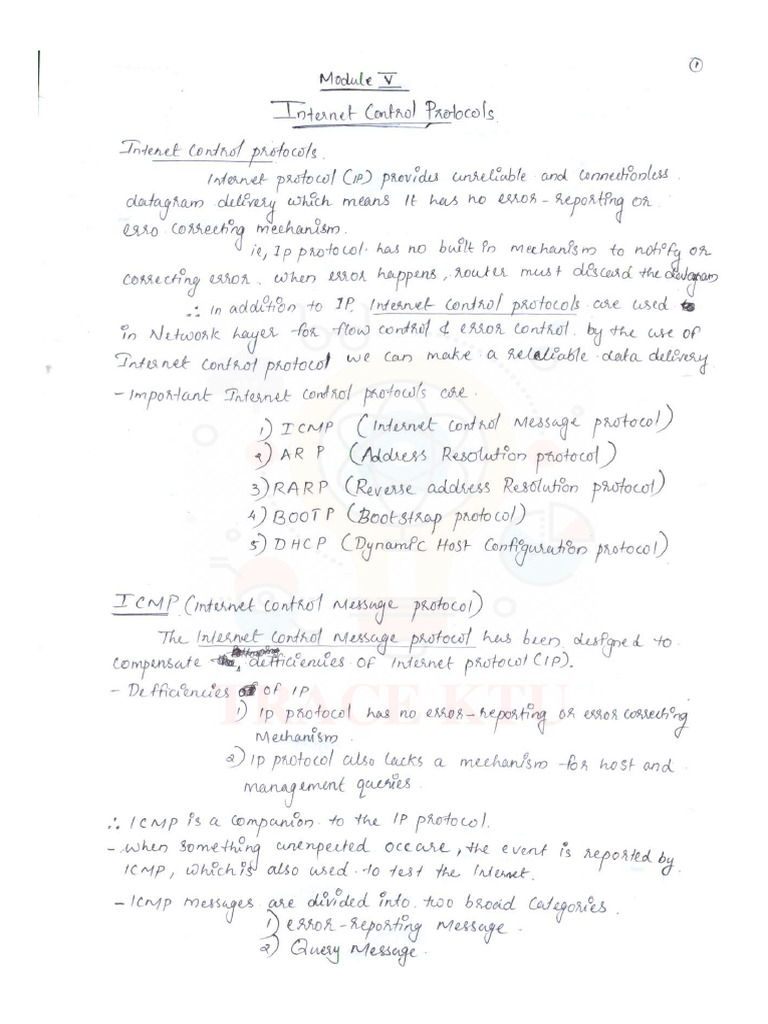 1
Module V
Internet Control Protocols
Intenet control protocols.
Internet protocol (IP) provides unreliable and connectionless
datagram delivery which means it has no error-reporting or
erro correcting mechanism.
ie, Ip protocol has no built in mechanism to notify or
correcting error. when error happens, router must discard the datagram
∴ In addition to IP, Internet control protocols are used to
in Network Layer for flow control & error control. by the use of
Internet control protocol we can make a relaliable data delivery
- Important Internet control protocols are.
1) ICMP (Internet Control Message protocol)
2) ARP (Address Resolution protocol)
3) RARP (Reverse address Resolution protocol)
4) BOOTP (Bootstrap protocol)
5) DHCP (Dynamic Host Configuration protocol)
ICMP (Internet control Message protocol)
The Internet Control Message protocol has been designed to
compensate defficiencies of Internet protocol (IP).
- Defficiencies of IP
TRACE KTU
1) Ip protocol has no error-reporting or error correcting
Mechanism.
2) Ip protocol also lacks a mechanism for host and
management queries.
∴ ICMP is a companion to the IP protocol.
- when something unexpected occare, the event is reported by
ICMP, which is also used to test the Internet.
- ICMP messages are divided into two broad categories.
1) error-reporting Message.
2) Query Message.